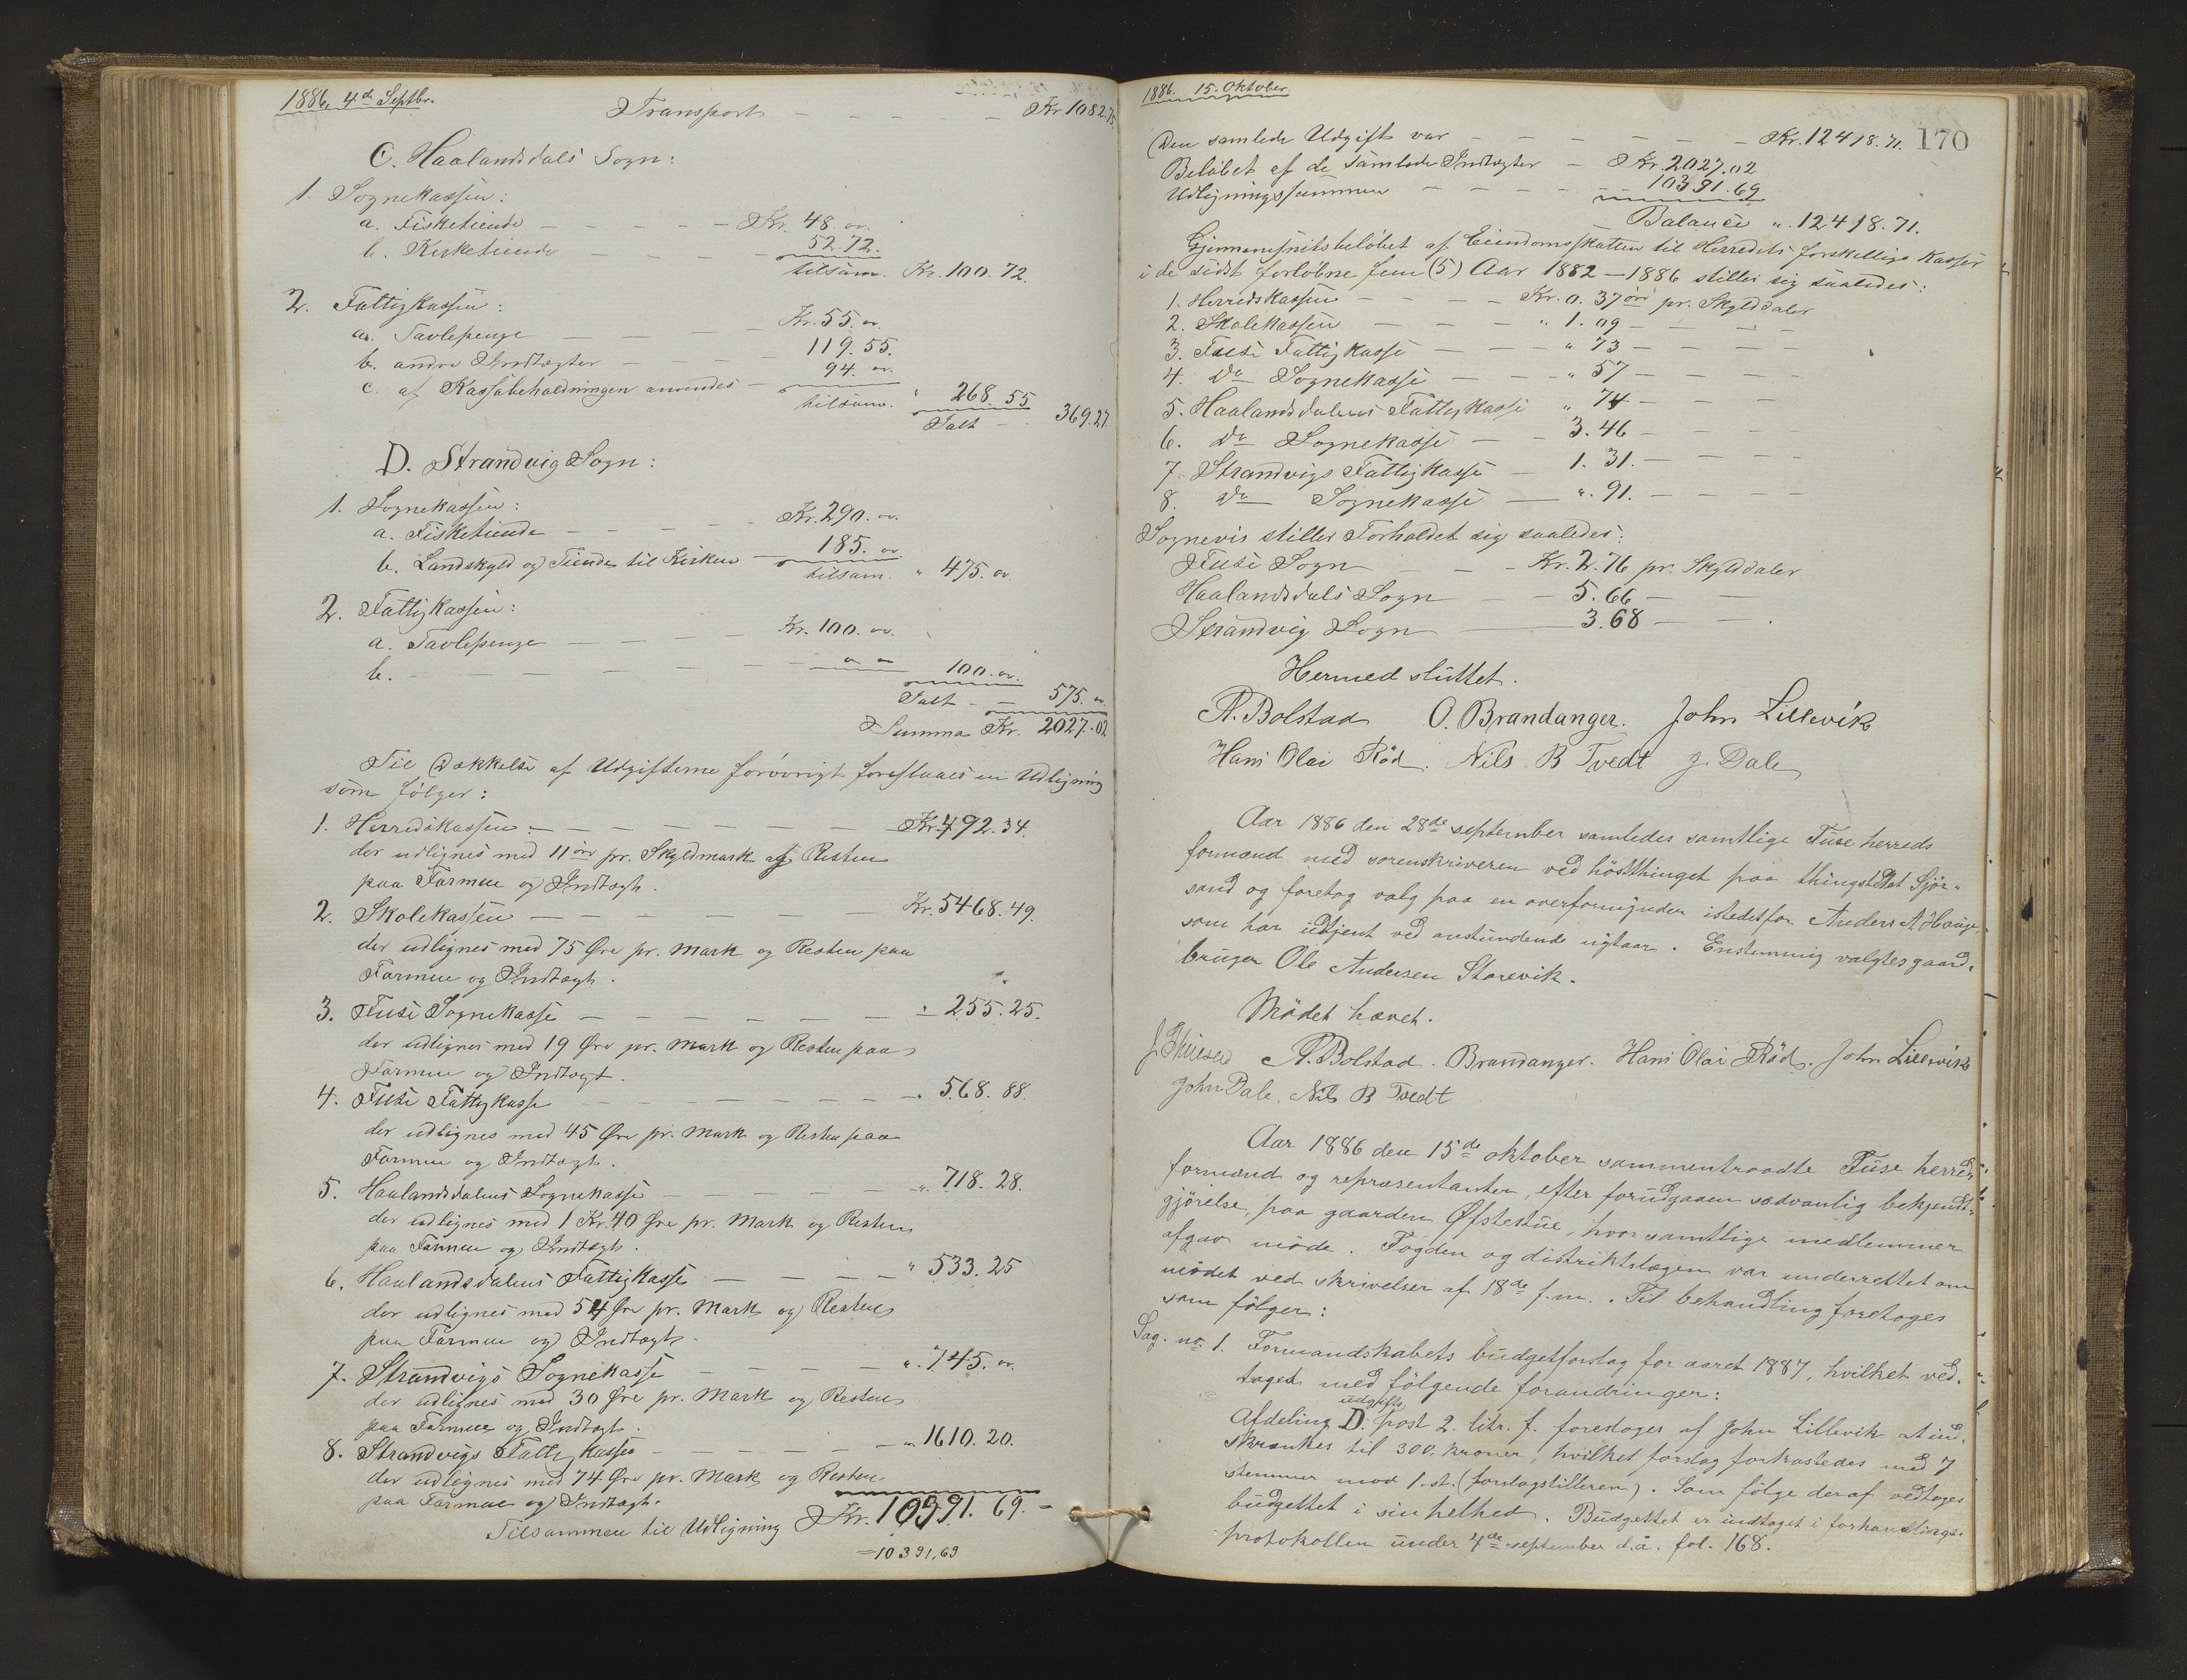 1886, 4de Septbr.
Transport - - - - - Kr. 1082.75
C. Haalandsdals Sogn:
1. Sognekassen:
a. Fisketiende - - - - - Kr. 48. "
b. Kirketiende - - - - 52.72.
tilsam. Kr. 100.72.
2. Fattigkassen:
a. Tavlepenge - - - Kr. 55. "
b. andre Indtægter - - - 119.55.
c. af Kassabeholdningen anvendes - 94. "
tilsam. " 268.55
Ialt - 369.27
D. Strandvig Sogn:
1. Sognekassen:
a. Fisketiende - - - - Kr. 290. "
b. Landskyld og Tiende til Kirken - 185. "
tilsam. " 475. "
2. Fattigkassen:
a. Tavlepenge - - - - Kr. 100. "
b. - - - - - - " " 100. "
Ialt - - 575. "
Summa Kr. 2027.02
Til Dækkelse af Udgifterne forøvrigt foreslaaes en Udligning
som følger:
1. Herredskassen - - - - - - - Kr. 492.34.
der udlignes med 11 øre pr. Skyldmark og Resten
paa Formue og Indtægt.
2. Skolekassen - - - - - - Kr. 5468.49.
der udlignes med 75 Øre pr. Mark og Resten paa
Formue og Indtægt.
3. Fuse Sognekasse - - - - - - " 255.25.
der udlignes med 19 Øre pr. Mark og Resten paa
Formue og Indtægt.
4. Fuse Fattigkasse - - - - - - " 568.88.
der udlignes med 45 Øre pr. Mark og Resten paa
Formue og Indtægt.
5. Haalandsdalens Sognekasse - - - - - " 718.28.
der udlignes med 1 Kr. 40 Øre pr. Mark og Resten
paa Formue og Indtægt.
6. Haalandsdalens Fattigkasse - - - - " 533.25
der udlignes med 54 Øre pr. Mark og Resten
paa Formue og Indtægt.
7. Strandvigs Sognekasse - - - - " 745. "
der udlignes med 30 Øre pr. Mark og Resten
paa Formue og Indtægt.
8. Strandvigs Fattigkasse - - - - - " 1610.20.
der udlignes med 74 Øre pr. Mark og Resten
paa Formue og Indtægt.
Tilsammen til Udligning Kr. 10391.69. -
=10391,69
1886. 15. Oktober
170
Den samlede Udgift var - - - - - - Kr. 12418.71.
Beløbet af de samlede Indtægter - Kr. 2027.02
Udligningssummen - - - - - 10391.69
Balance " 12418.71.
Gjennemsnitsbeløbet af Eiendomsskatten til Herredets forskellige Kasser
i de sidst forløbne fem (5) Aar 1882 - 1886 stiller sig saaledes:
1. Herredskassen - - - - Kr. 0.37 øre pr. Skylddaler
2. Skolekassen - - - - " 1.09 - - - -
3. Fuse Fattigkasse - - - " 73 - - - -
4. Do Sognekasse - - - " 57 - - - -
5. Haalandsdalens Fattigkasse " 74 - - - -
6. Do Sognekasse - - 3.46 - - - -
7. Strandvigs Fattigkasse - 1.31. - - - -
8. Do Sognekasse - ". 91. - - - -
Sognevis stiller Forholdet sig saaledes:
Fuse Sogn - - - Kr. 2.76 pr. Skylddaler
Haalandsdals Sogn - - 5.66 - -
Strandvig Sogn - 3.68 - -
Hermed sluttet.
A. Bolstad O. Brandanger. John Lillevik
Hans Olai Rød. Nils B Tvedt J. Dale
Aar 1886 den 28de september samledes samtlige Fuse herreds
formænd med sorenskriveren ved høstthinget paa thingstedet Sjør-
sand og foretog valg paa en overformynder istedetfor Anders A Hauge,
som har udtjent ved anstundende nytaar. Enstemmig valgtes gaard-
bruger Ole Andersen Storevik.
Mødet hævet.
A. Bolstad. Brandanger. Hans Olai Rød. John Lillevik
John Dale. Nils B Tvedt
Aar 1886 den 15de oktober sammentraadte Fuse herreds
formænd og repræsentanter, efter forudgaaen sædvanlig bekjendt-
gjørelse, paa gaarden Øfstestue, hvor samtlige medlemmer
afgav møde. Fogden og distriktslægen var underrettet om
mødet ved skrivelser af 18de f.m. Til behandling foretoges
som følger:
Sag. no. 1. Formandskabets budgetforslag for aaret 1887, hvilket ved-
toges med følgende forandringer:
udgifts
Afdeling D. post 2. litr. f. foresloges af John Lillevik at ind-
skrænkes til 300. kroner, hvilket forslag forkastedes med 7
stemmer mod 1. st. (forslagstilleren). Som følge deraf vedtoges
budgettet i sin helhed. Budgettet er indtaget i forhandlings-
protokollen under 4de september d.å. fol. 168.